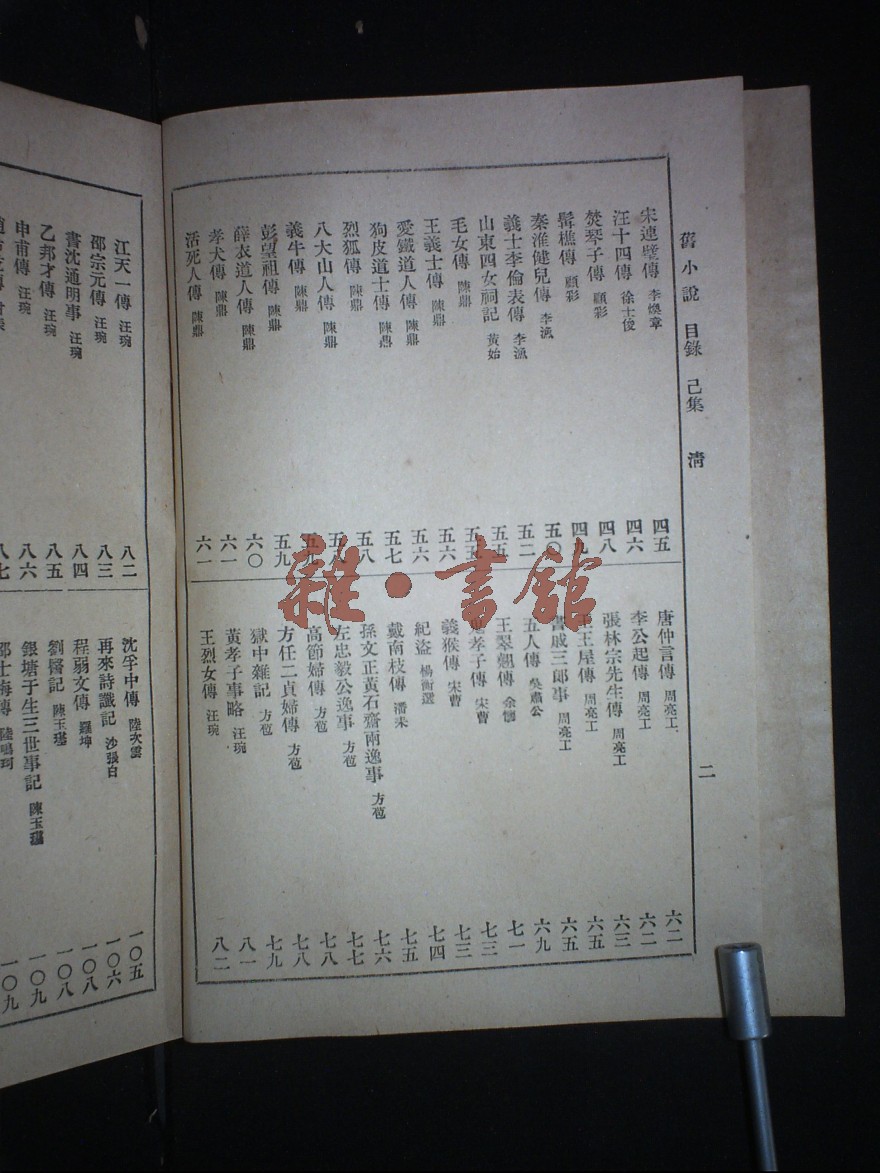 舊小說 目錄 己集 清
二
宋連璧傳 李煥章 四五
汪十四傳 徐士俊 四六
焚琴子傳 顧彩 四八
髯樵傳 顧彩 四九
秦淮健兒傳 李漁 五〇
義士李倫表傳 李漁 五二
山東四女祠記 黃始 五五
毛女傳 陳鼎 五五
王義士傳 陳鼎 五六
愛鐵道人傳 陳鼎 五六
狗皮道士傳 陳鼎 五七
烈狐傳 陳鼎 五八
八大山人傳 陳鼎 五八
義牛傳 陳鼎 五九
彭望祖傳 陳鼎 五九
薛衣道人傳 陳鼎 六〇
孝犬傳 陳鼎 六一
活死人傳 陳鼎 六一
唐仲言傳 周亮工 六二
李公起傳 周亮工 六二
張林宗先生傳 周亮工 六三
王屋傳 周亮工 六五
書戚三郎事 周亮工 六五
五人傳 吳肅公 六九
王翠翹傳 余懷 七一
孝子傳 宋曹 七三
義猴傳 宋曹 七三
紀盜 楊衡選 七四
戴南枝傳 潘耒 七五
孫文正黃石齋兩逸事 方苞 七六
左忠毅公逸事 方苞 七七
高節婦傳 方苞 七八
方任二貞婦傳 方苞 七八
獄中雜記 方苞 七九
黃孝子事略 汪琬 八一
王烈女傳 汪琬 八二
江天一傳 汪琬 八二
邵宗元傳 汪琬 八三
書沈通明事 汪琬 八四
乙邦才傳 汪琬 八五
申甫傳 汪琬 八六
八七
沈孚中傳 陸次雲 一〇五
再來詩讖記 沙張白 一〇六
程弱文傳 羅坤 一〇八
劉醫記 陳玉璂 一〇八
銀塘于生三世事記 陳玉璂 一〇九
邵士梅傳 陸鳴珂 一〇九
雜·書館